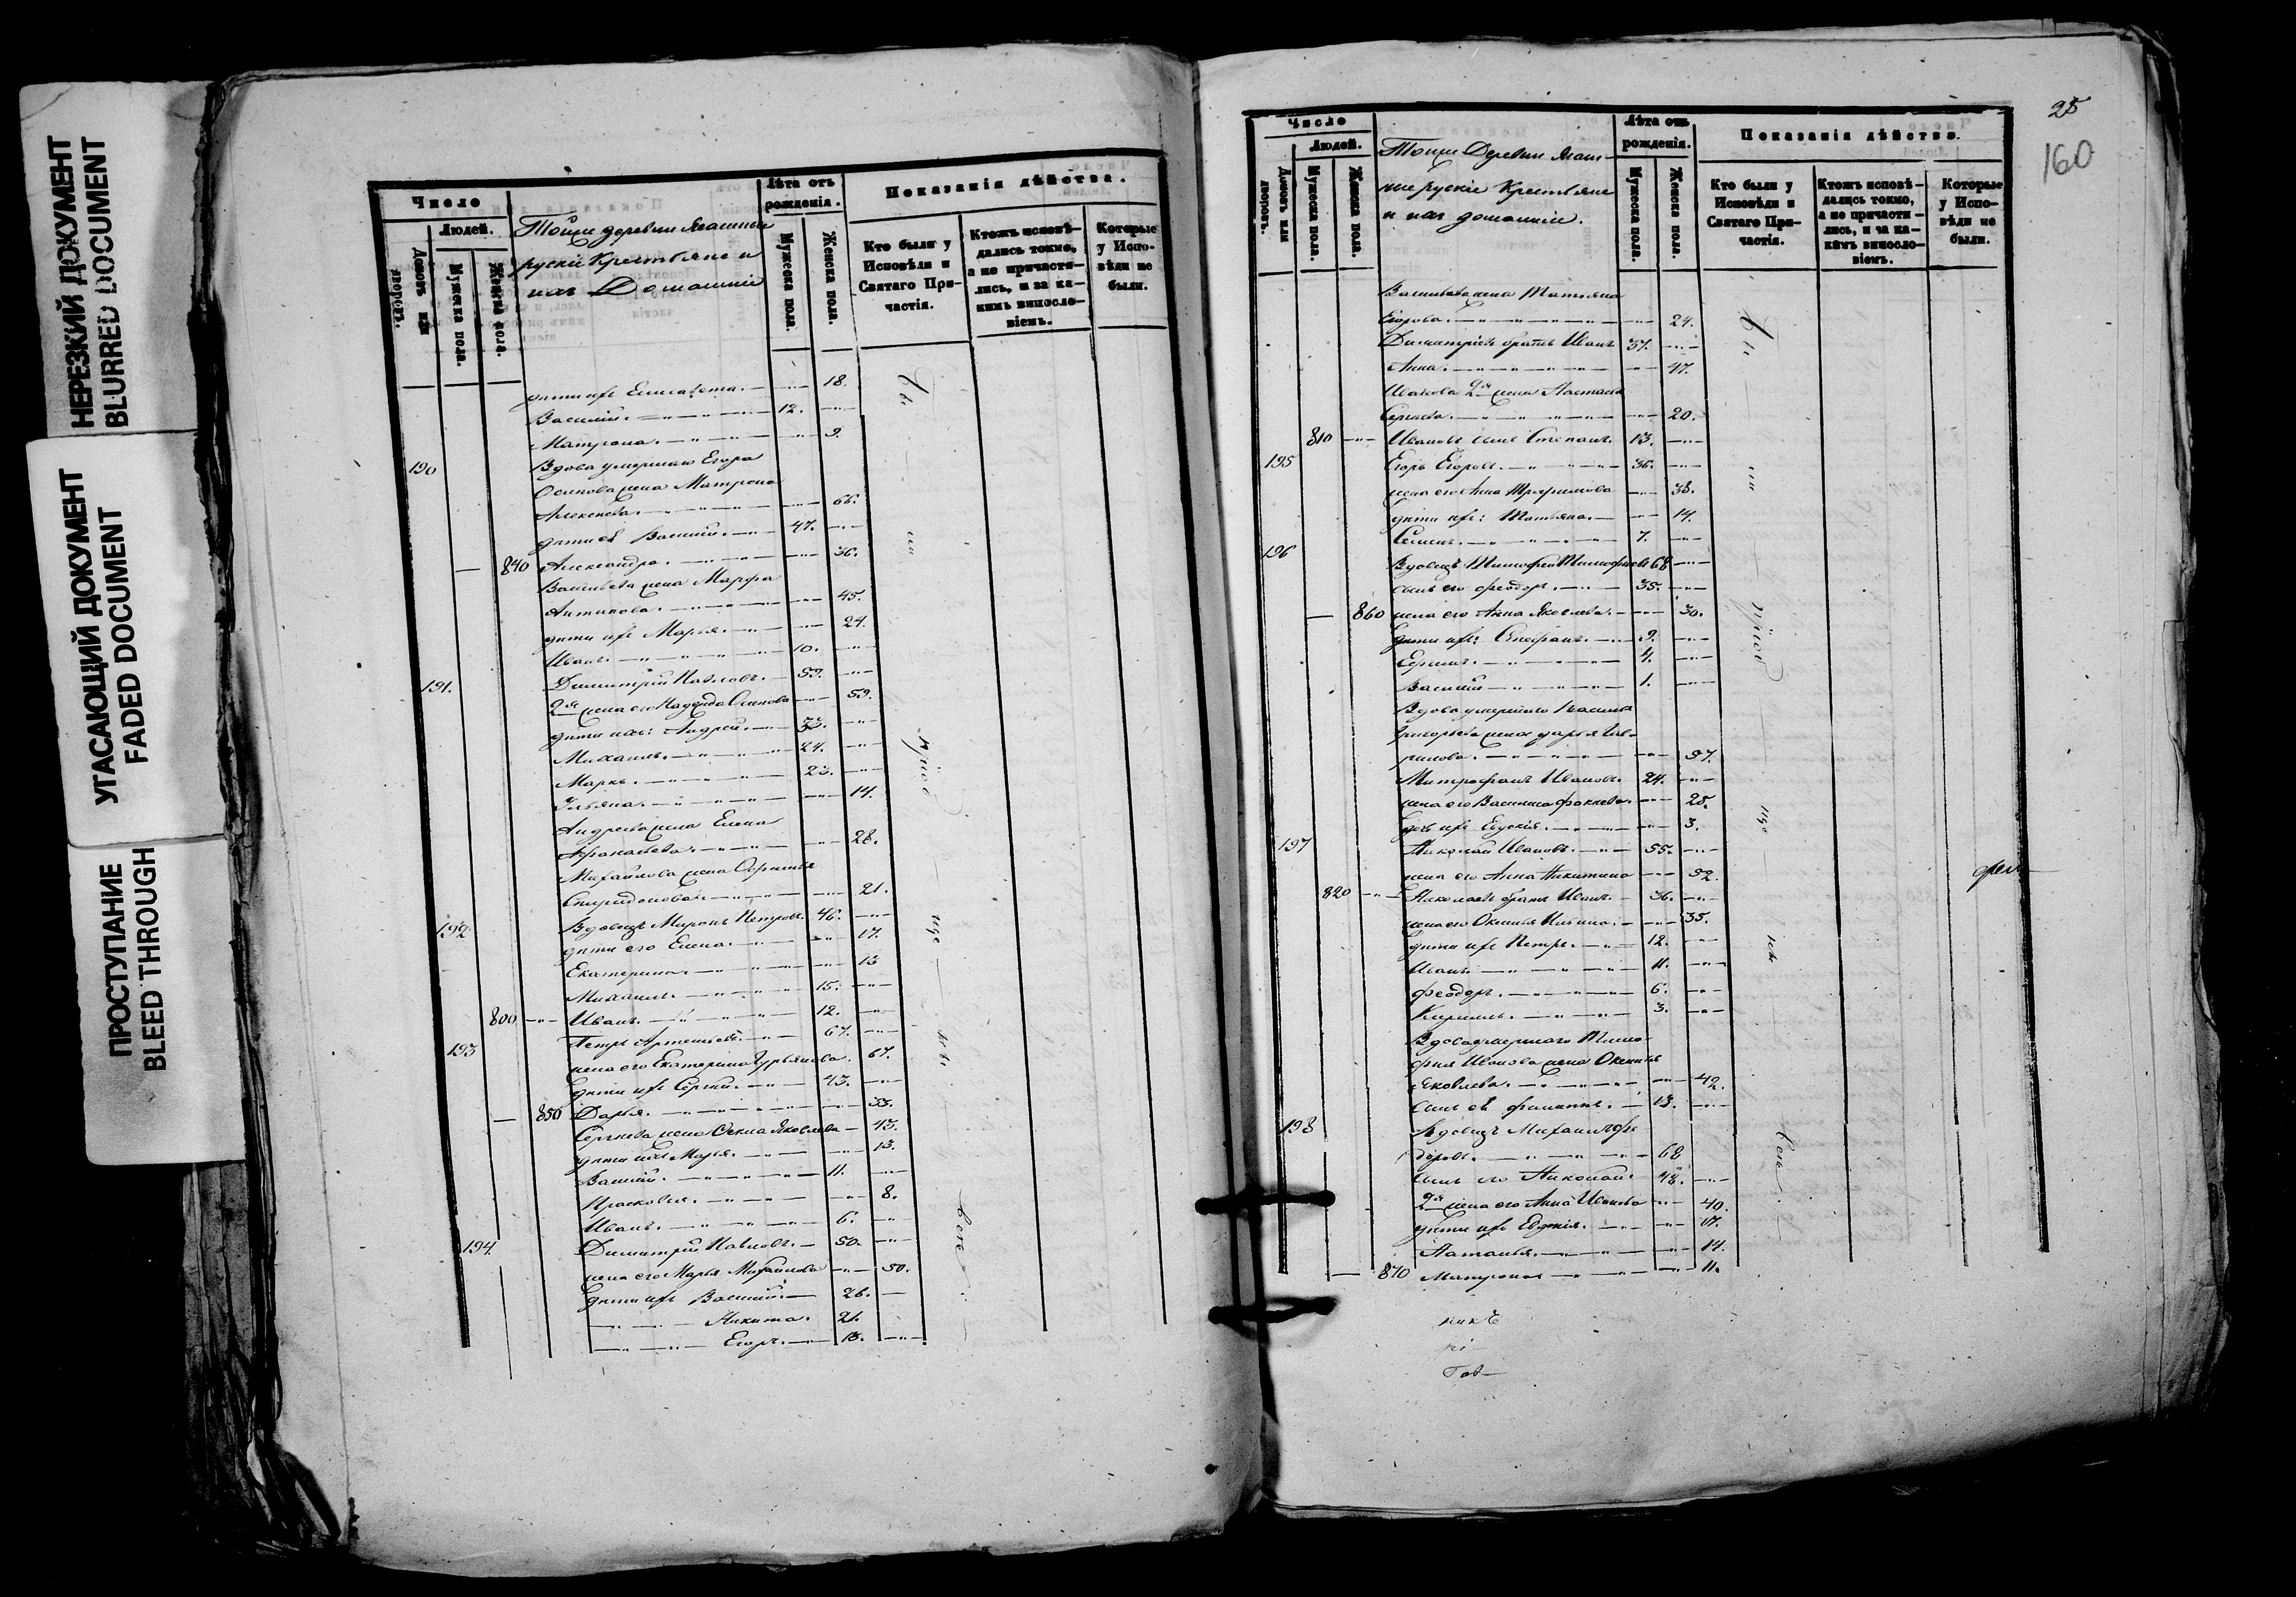 НЕРЕЗКИЙ ДОКУМЕНТ
BLURRED DOCUMENT
УГАСАЮЩИЙ ДОКУМЕНТ
FADED DOCUMENT
ПРОСТУПАНИЕ
BLEED THROUGH
Число
Людей.
Домовъ или дворовъ.
Мужеска пола.
Женска пола.
Тойже деревни
руские Крестьяне и
ихъ Домашніе
Лѣта отъ рожденія.
Мужеска пола.
Женска пола.
Показанія дѣйства.
Кто были у Исповѣди и Святаго Причастія.
Ктожъ исповѣ-
дались токмо,
а не причасти-
лись, и за ка-
кимъ винсло-
віемъ.
Которые
у Испо-
вѣди не
были.
дѣти ихъ Елисавета. 18.
Василій. 12.
Матрона. 9.
190 Вдова умершаго Егора
Осипова жена Матрона
Алексеева. 66.
дѣти ея Василій. 47.
840 Александра. 36.
Васильева жена Марфа
Антипова. 45.
дѣти ихъ Марья. 24.
Иванъ. 10.
191. Димитрій Павловъ. 59.
2я жена его Надежда Осипова 59.
дѣти ихъ: Андрей. 33.
Михаилъ. 24.
Марко. 23.
Ульяна. 14.
Андреева жена Елена
Афанасьева. 28.
Михайлова жена
Спиридонова. 21.
192 Вдовецъ Миронъ Петровъ. 46.
дѣти его Елена. 17.
Екатерина. 13
Михаилъ. 15.
800 Иванъ. 12.
193 Петръ Артемьевъ. 67.
жена его Екатерина Гурьянова. 67.
дѣти ихъ Сергій. 43.
850 Дарья. 33.
Сергѣева жена Яковлева 43.
дѣти ихъ Марья. 13.
Василій. 11.
Прасковья. 8.
Иванъ. 6.
194. Димитрій Павловъ. 50.
жена его Марья Михайлова 50.
дѣти ихъ Василій 26.
Никита. 21.
Егоръ. 13.
25
160
Число
Людей.
Домовъ или дворовъ.
Мужеска пола.
Женска пола.
Тойже Деревни
руские Крестьяне
и ихъ домашніе.
Лѣта отъ
рожденія.
Мужеска пола.
Женска пола.
Показанія дѣйства.
Кто были у
Исповѣди и
Святаго При-
частія.
Ктожъ исповѣ-
дались токмо,
а не причасти-
лись, и за ка-
кимъ винсло-
віемъ.
Которые
у Испо-
вѣди не
были.
Васильева жена Татьяна
Егорова. 24.
Димитріевъ братъ Иванъ 37.
Анна. 47.
Иванова 2я жена Настасья
Сергѣева. 20.
810 Ивановъ сынъ Степанъ. 13.
195 Егоръ Егоровъ. 36.
жена его Анна Трофимова 38.
дѣти ихъ: Татьяна. 14.
Семенъ. 7.
196 Вдовецъ Тимофей Тимофѣевъ 68
сынъ его Феодоръ. 35.
860 жена его Анна Яковлева. 30.
дѣти ихъ: Стефанъ. 9.
4.
Василій 1.
Вдова умершаго
Григорьева жена Дарья Гав-
рилова. 57.
Митрофанъ Ивановъ. 24.
жена его Василиса Фокѣева. 25.
дочь ихъ Евдокія. 3.
197 Николай Ивановъ. 55.
жена его Анна Никитина 52.
820 Николаевъ братъ Иванъ. 36.
жена его Оксинья Ильина. 35.
дѣти ихъ Петръ. 12.
Иванъ 11.
Феодоръ. 6.
Кирилъ. 3.
Вдова умершаго Тимо-
фея Иванова жена Оксинья
Яковлева. 42.
сынъ ея Филипъ. 13.
198 Вдовецъ Михаилъ Фе-
доровъ. 68
сынъ его Николай 48.
2я жена его Анна Иванова 40.
дѣти ихъ Евдокія. 17.
Наталья. 14.
870 Матрона 11.